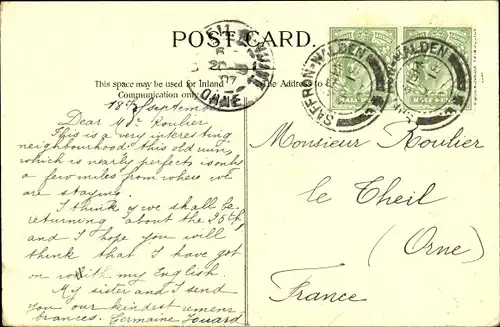 POST CARD.
This space may be used for Inland
Communication only
Address to
SAFFRON-WALDEN
SAFFRON-WALDEN
ORNE
18th September
Dear Mr. Roulier
This is a very interesting
neighbourhood. This old ruin,
which is nearly perfect is only
a few miles from where we
are staying.
I think y we shall be
returning about the 25th,
and I hope you will
think that I have got
on with my English.
My sister and I send
you our kindest remem
brances. Germaine
Monsieur Roulier
le Theil
(Orne)
France